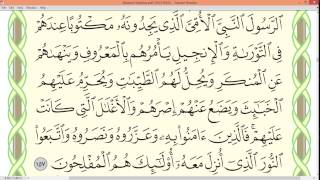 ٱلرَّسُولَ ٱلنَّبِىَّ ٱلْأُمِّىَّ ٱلَّذِى يَجِدُونَهُۥ مَكْتُوبًا عِندَهُمْ
فِى ٱلتَّوْرَىٰةِ وَٱلْإِنجِيلِ يَأْمُرُهُم بِٱلْمَعْرُوفِ وَيَنْهَىٰهُمْ
عَنِ ٱلْمُنكَرِ وَيُحِلُّ لَهُمُ ٱلطَّيِّبَـٰتِ وَيُحَرِّمُ عَلَيْهِمُ
ٱلْخَبَـٰٓئِثَ وَيَضَعُ عَنْهُمْ إِصْرَهُمْ وَٱلْأَغْلَـٰلَ ٱلَّتِى كَانَتْ
عَلَيْهِمْ فَٱلَّذِينَ ءَامَنُوا۟ بِهِۦ وَعَزَّرُوهُ وَنَصَرُوهُ وَٱتَّبَعُوا۟
ٱلنُّورَ ٱلَّذِىٓ أُنزِلَ مَعَهُۥٓ أُو۟لَـٰٓئِكَ هُمُ ٱلْمُفْلِحُونَ ١٥٧